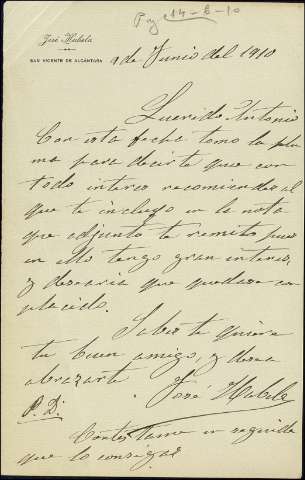 14-6-10
José Hubela
SAN VICENTE DE ALCÁNTARA
9 de Junio del 1910
Querido Antonio
Con esta fecha tomo la plu
ma para decirte que con
todo interes recomiendes al
que te incluyo en la nota
que adjunto te remito pues
en ello tengo gran interes,
y desearia que quedara com
placido.
Sabes te quiere
tu buen amigo, y desea
abrazarte
José Hubela
P.D.
Contestame en seguida
que lo consigas